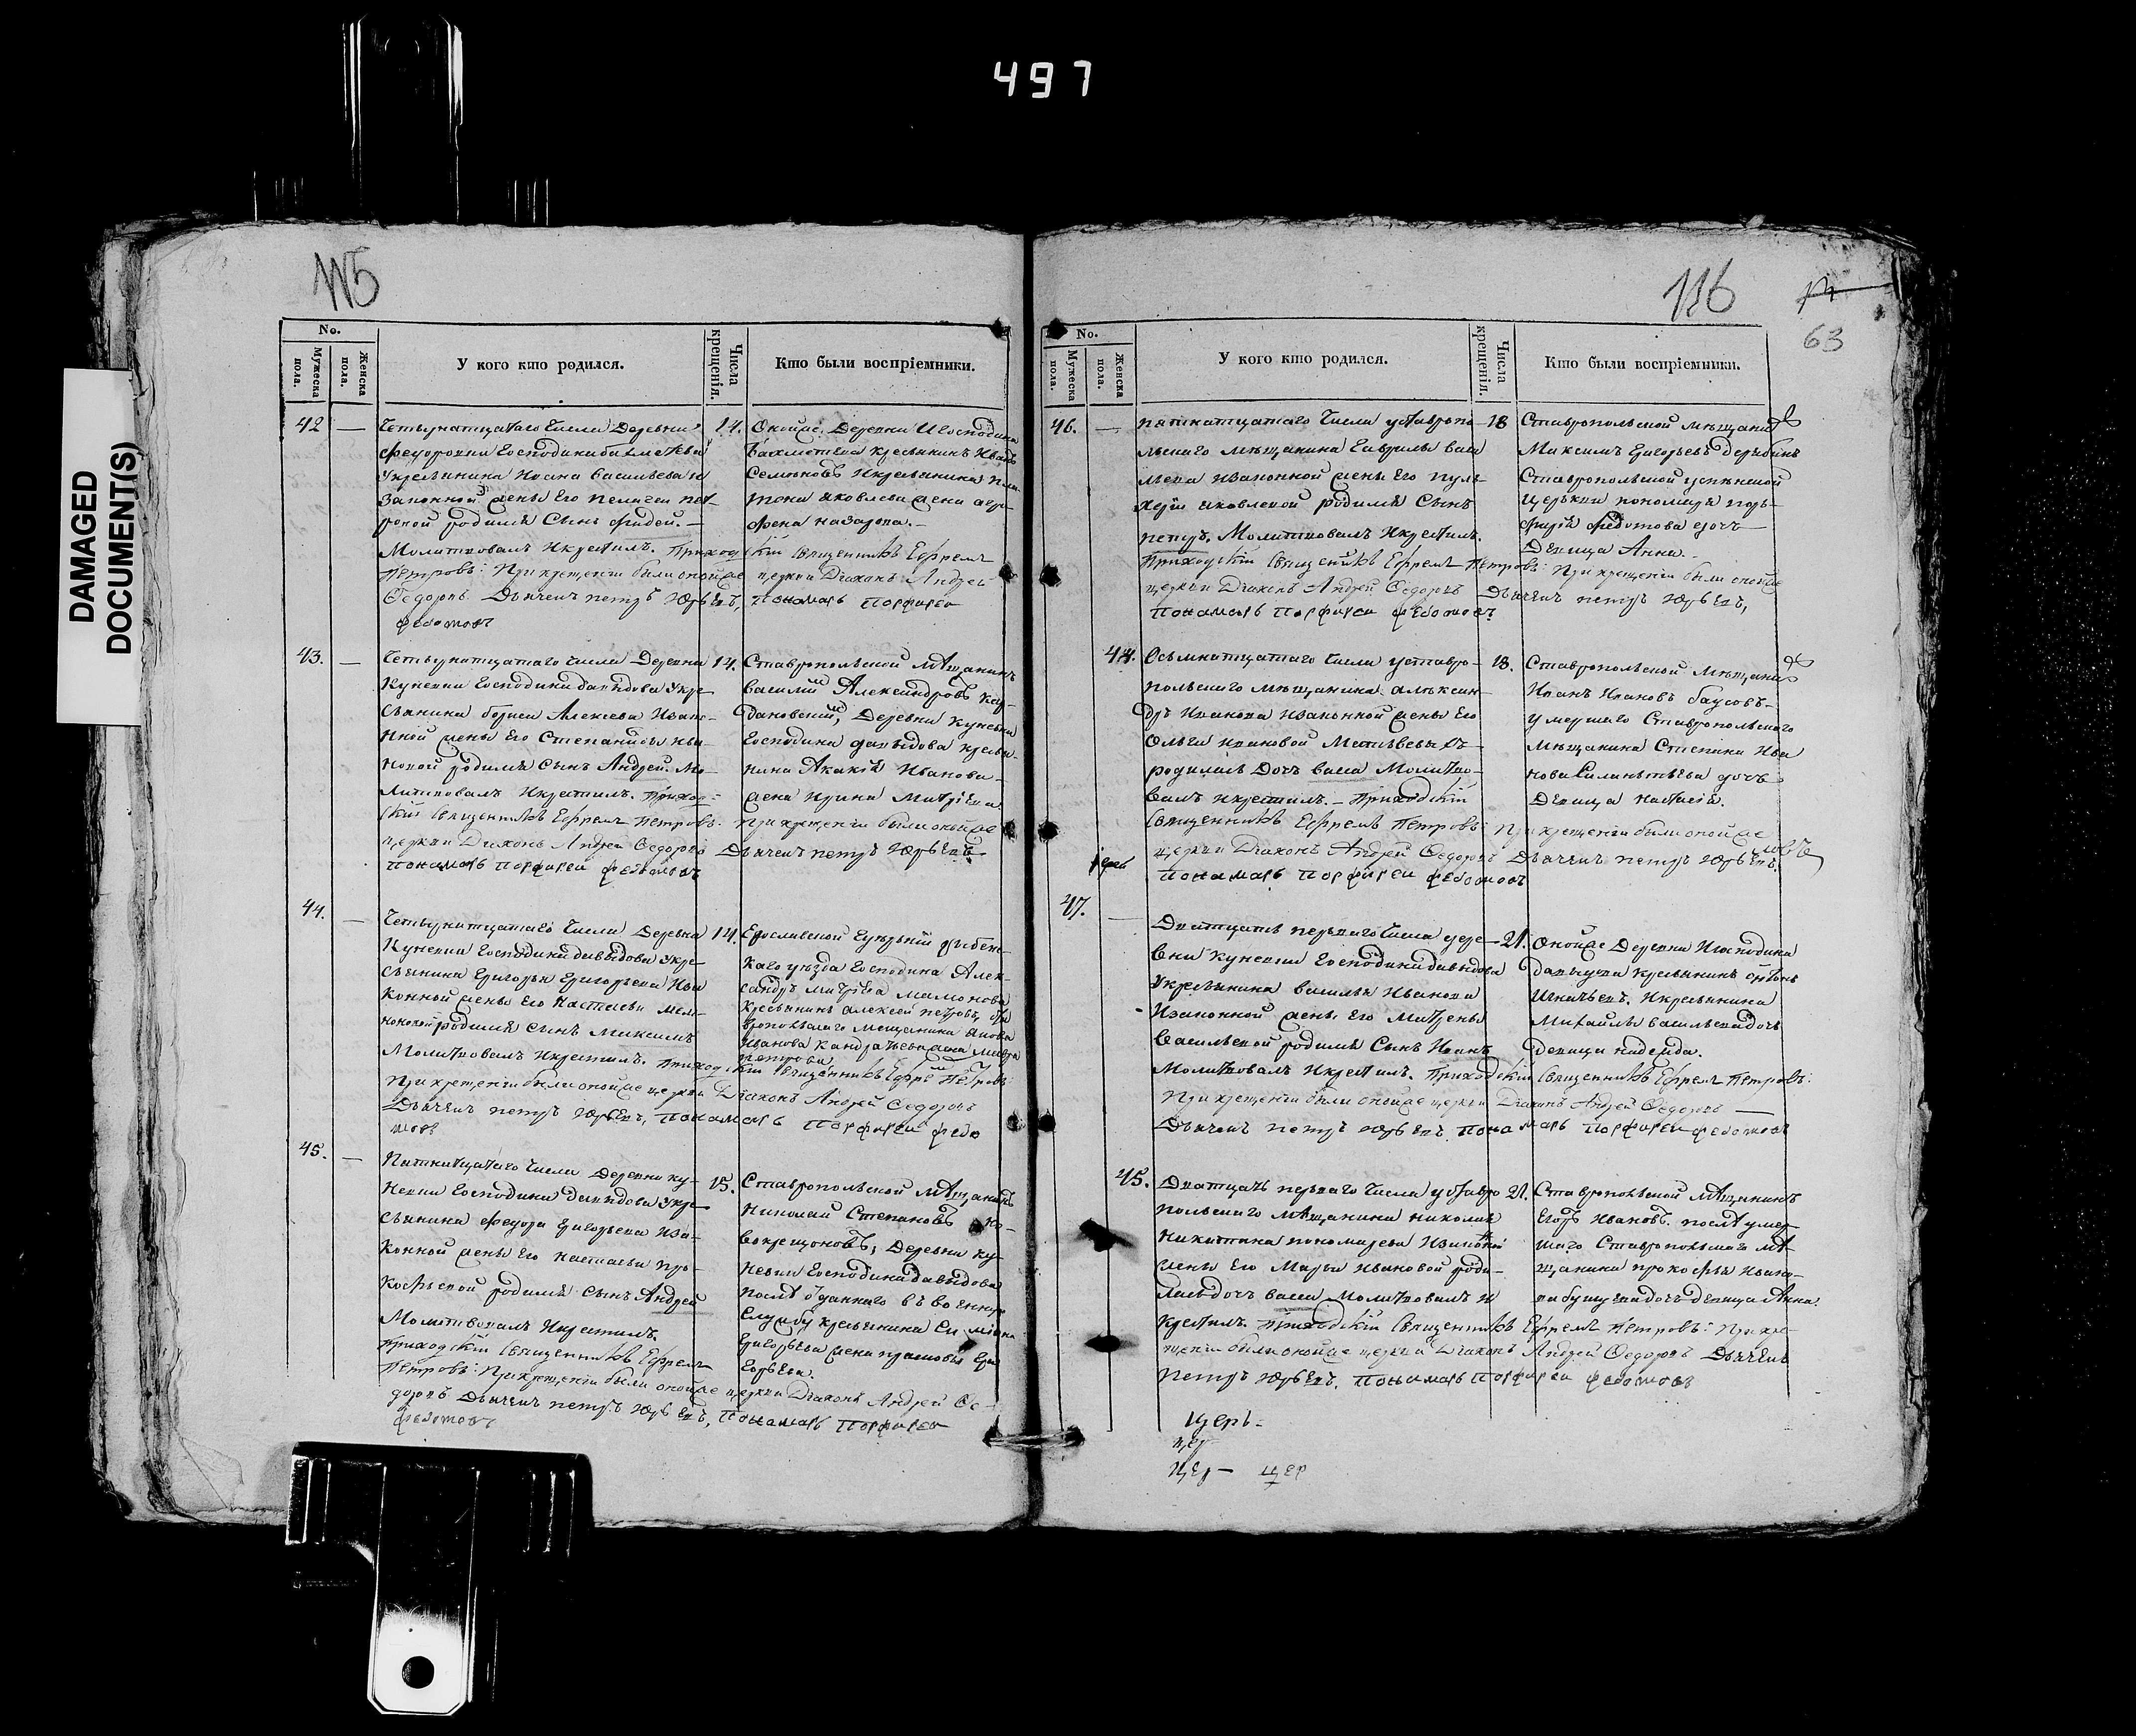 497
DAMAGED
DOCUMENT(S)
115
No.
Мужеска пола.
Женска пола.
У кого кто родился.
Числа крещенія.
Кто были воспріемники.
42 — Четырнатцатаго числа Деревни
федоровки Господина бахметева
укрестьянина Иоана васильева и
Законной жены Его пелагеи пет-
ровой родился Сынъ
Молитвовалъ Икрестилъ. Приходскій Священникъ Ефремъ
Петровъ: При крещеніи были оной же церкви Діаконъ Андрей
Ѳедоровъ Дьячекъ петръ Юрьевъ, Понамарь Порфирей
федотовъ
14. Оной же Деревни И Господина
бахметева крестьянинъ Иванъ
Семеновъ Икрестьянина
яковлева жена
фена назарова. —
43. — Четырнатцатаго числа Деревни
Кунеевки Господина давыдова укре-
стьянина бориса Алексеева Изако-
нной жены Его Степаниды ива-
новой родился Сынъ Андрей. Мо-
литвовалъ Икрестилъ. Приход-
скій Священникъ Ефремъ Петровъ. При крещеніи были оной же
церкви Діаконъ Андрей Ѳедоровъ Дьячекъ петръ Юрьевъ
понамарь Порфирей федотовъ
14. Ставропольской мѣщанинъ
василий Александровъ
Деревни кунеевки
Господина давыдова крестья-
нина Акакія Иванова
жена Ирина Митріева
44. — Четырнатцатаго числа Деревни
Кунеевки Господина давыдова укре-
стьянина Григорья Григорьева Иза-
конной жены Его Настасьи
родился сынъ Максимъ
Молитвовалъ Икрестилъ. Приходскій Священникъ Ефремъ Петровъ:
При крещеніи были оной же церкви Діаконъ Андрей Ѳедоровъ
Дьячекъ петръ Юрьевъ, понамарь Порфирей федо
товъ
14. Ерославской Губерніи
каго уезда Господина Алек-
сандръ митріева мамонова
крестьянинъ алексей петровъ, ста
вропольскаго мещанина
Иванова жена мавра
петрова
45. — Пятнатцатаго числа Деревни ку-
неевки Господина давыдова укре-
стьянина федора Григорьева Иза-
конной жены Его настасьи про-
кофьевой родился Сынъ Андрей
Молитвовалъ Икрестилъ.
Приходскій Священникъ Ефремъ
Петровъ: При крещеніи были оной же церкви Діаконъ Андрей Ѳе-
доровъ Дьячекъ петръ Юрьевъ, Понамарь Порфирей
федотовъ
15. Ставропольской мѣщанинъ
Николай Степановъ но-
вокрещоновъ, Деревни ку-
неевки Господина давыдова
послѣ отданнаго въ военную
Службу крестьянина
Григорьева жена прасковья
Егорьева.
116
63
No.
Мужеска пола.
Женска пола.
У кого кто родился.
Числа крещенія.
Кто были воспріемники.
46. — пятнатцатаго числа уставропо-
льскаго мѣщанина Гаврилы васи
льева изаконной жены Его пуль-
херіи яковлевой родился Сынъ
петръ. Молитвовалъ Икрестилъ.
Приходскій Священникъ Ефремъ Петровъ: При крещеніи были оной же
церкви Діаконъ Андрей Ѳедоровъ Дьячекъ петръ Юрьевъ,
Понамарь Порфирей федотовъ.
18 Ставропольской мѣщанинъ
Максимъ Григорьевъ
Ставропольской успенской
Церкви пономаря пор-
фирія федотова дочь
Девица Анна.
44. Осьмнатцатаго числа уставро-
польскаго мѣщанина алексан-
дръ Иванова изаконной жены Его
Ольги ивановой
родилась Дочь васса Молитво-
валъ икрестилъ. — Приходскій
Священникъ Ефремъ Петровъ: При крещеніи были оной же
церкви Діаконъ Андрей Ѳедоровъ Дьячекъ петръ Юрьевъ.
понамарь Порфирей федотовъ
18. Ставропольской мѣщанинъ
Иванъ Ивановъ
умершаго Ставропольскаго
мѣщанина Степана Ива
нова дочь
Девица настасія.
47. — Дватцать перваго числа дере-
вни кунеевки Господина давыдова
укрестьянина василья Иванова
Изаконной жены Его Матрены
Васильевой родился Сынъ Иванъ
Молитвовалъ Икрестилъ. Приходскій Священникъ Ефремъ Петровъ:
При крещеніи были оной же церкви Діаконъ Андрей Ѳедоровъ —
Дьячекъ петръ Юрьевъ. понамарь Порфирей федотовъ
21. Оной же Деревни Игосподина
крестьянинъ
Икрестьянина
Михайлы васильева дочь
Девица надежда.
45. Дватцать перваго числа уставро
польскаго мѣщанина николая
никитина пономарева Изаконной
жены Его Марьи ивановой роди-
лась дочь васса Молитвовалъ и
крестилъ. Приходскій Священникъ Ефремъ Петровъ: При кре-
щеніи были оной же церкви Діаконъ Андрей Ѳедоровъ Дьячекъ
Петръ Юрьевъ. понамарь Порфирей федотовъ
21. Ставропольской мѣщанинъ
Егоръ Ивановъ. послѣ умер
шаго Ставропольскаго мѣ-
щанина прокофья ивано-
ва дочь девица Анна.
Церь-
цер
Цер — цер